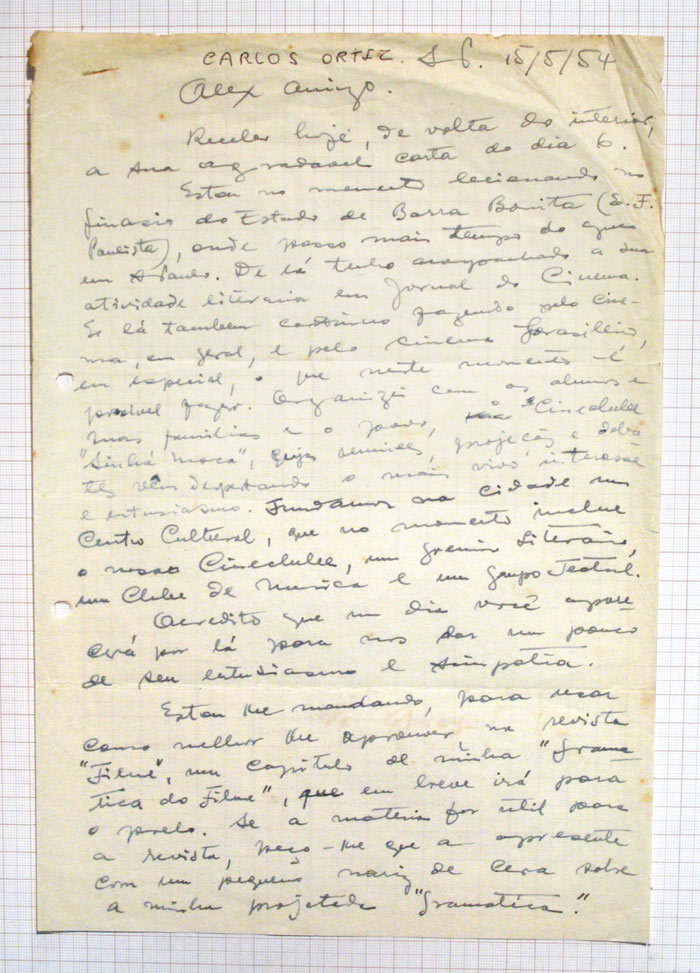 CARLOS ORTIZ. S P. 15/5/54
Alex amigo.
Recebi hoje, de volta do interior,
a sua agradavel carta do dia 6.
Estou no momento lecionando no
Ginasio do Estado de Barra Bonita (E. F.
Paulista), onde passo mais tempo do que
em S. Paulo. De lá tenho acompanhado a sua
atividade literaria em Jornal do Cinema.
E lá tambem continuo fazendo pelo cine-
ma, em geral, e pelo cinema brasileiro,
em especial, o que neste momento é
possivel fazer. Organizei com os alunos e
suas familias e o povo, o Cineclube
"Sinhá Moça", cujas reuniões, projeções e deba-
tes vêm despertando o mais vivo interesse
e entusiasmo. Fundamos na cidade um
Centro Cultural, que no momento inclue
o nosso Cineclube, um gremio Literario,
um Clube de Musica e um grupo Teatral.
Acredito que um dia você apare-
cerá por lá para nos dar um pouco
de seu entusiasmo e simpatia.
Estou lhe mandando, para usar
como melhor lhe aprouver na revista
"Filme", um capítulo de minha "Grama-
tica do Filme", que em breve irá para
o prelo. Se a materia for util para
a revista, peço-lhe que a apresente
com um pequeno nariz de cera sobre
a minha projetada "Gramatica".